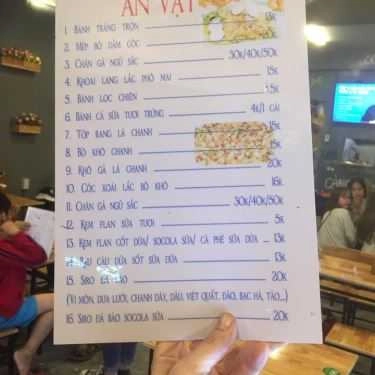 ĂN VẶT
1. BÁNH TRÁNG TRỘN 15K
2. MẸT BÒ DẦM CÓC
3. CHÂN GÀ NGŨ SẮC 30K/40K/50K
4. KHOAI LANG LẮC PHÔ MAI 15K
5. BÁNH LỌC CHIÊN
6. BÁNH CÁ SỮA TƯƠI TRỨNG 4K/1 CÁI
7. TÓP RANG LÁ CHANH 15K
8. BÒ KHÔ CHANH 15K
9. KHÔ GÀ LÁ CHANH 20K
10. CÓC XOÀI LẮC BÒ KHÔ 16K
11. CHÂN GÀ NGŨ SẮC 30K/40K/50K
12. KEM FLAN SỮA TƯƠI 5K
13. KEM FLAN CỐT DỪA/ SOCOLA SỮA/ CÀ PHÊ SỮA DỪA ... 13K
14. RAU CÂU DỪA SỐT SỮA DỪA 13K
15. SIRO ĐÁ BÀO 20K
(VỊ MÔN, DƯA LƯỚI, CHANH DÂY, DÂU, VIỆT QUẤT, ĐÀO, BẠC HÀ, TÁO...)
16. SIRO ĐÁ BÀO SOCOLA SỮA 20K